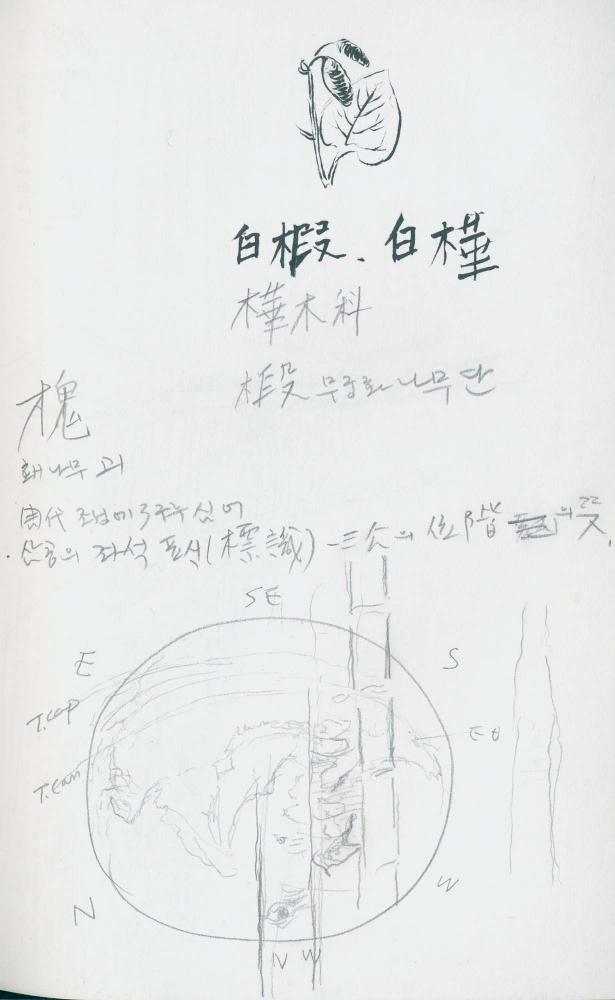 白椵. 白樺
樺木科
椵 무궁화나무 단
槐
홰나무 괴
周代 조정에 심어
삼공의 좌석 표식(標識) - 三公의 位階 의 뜻.
SE
E
S
T.Cap
EQ
T.Can
W
N
NW